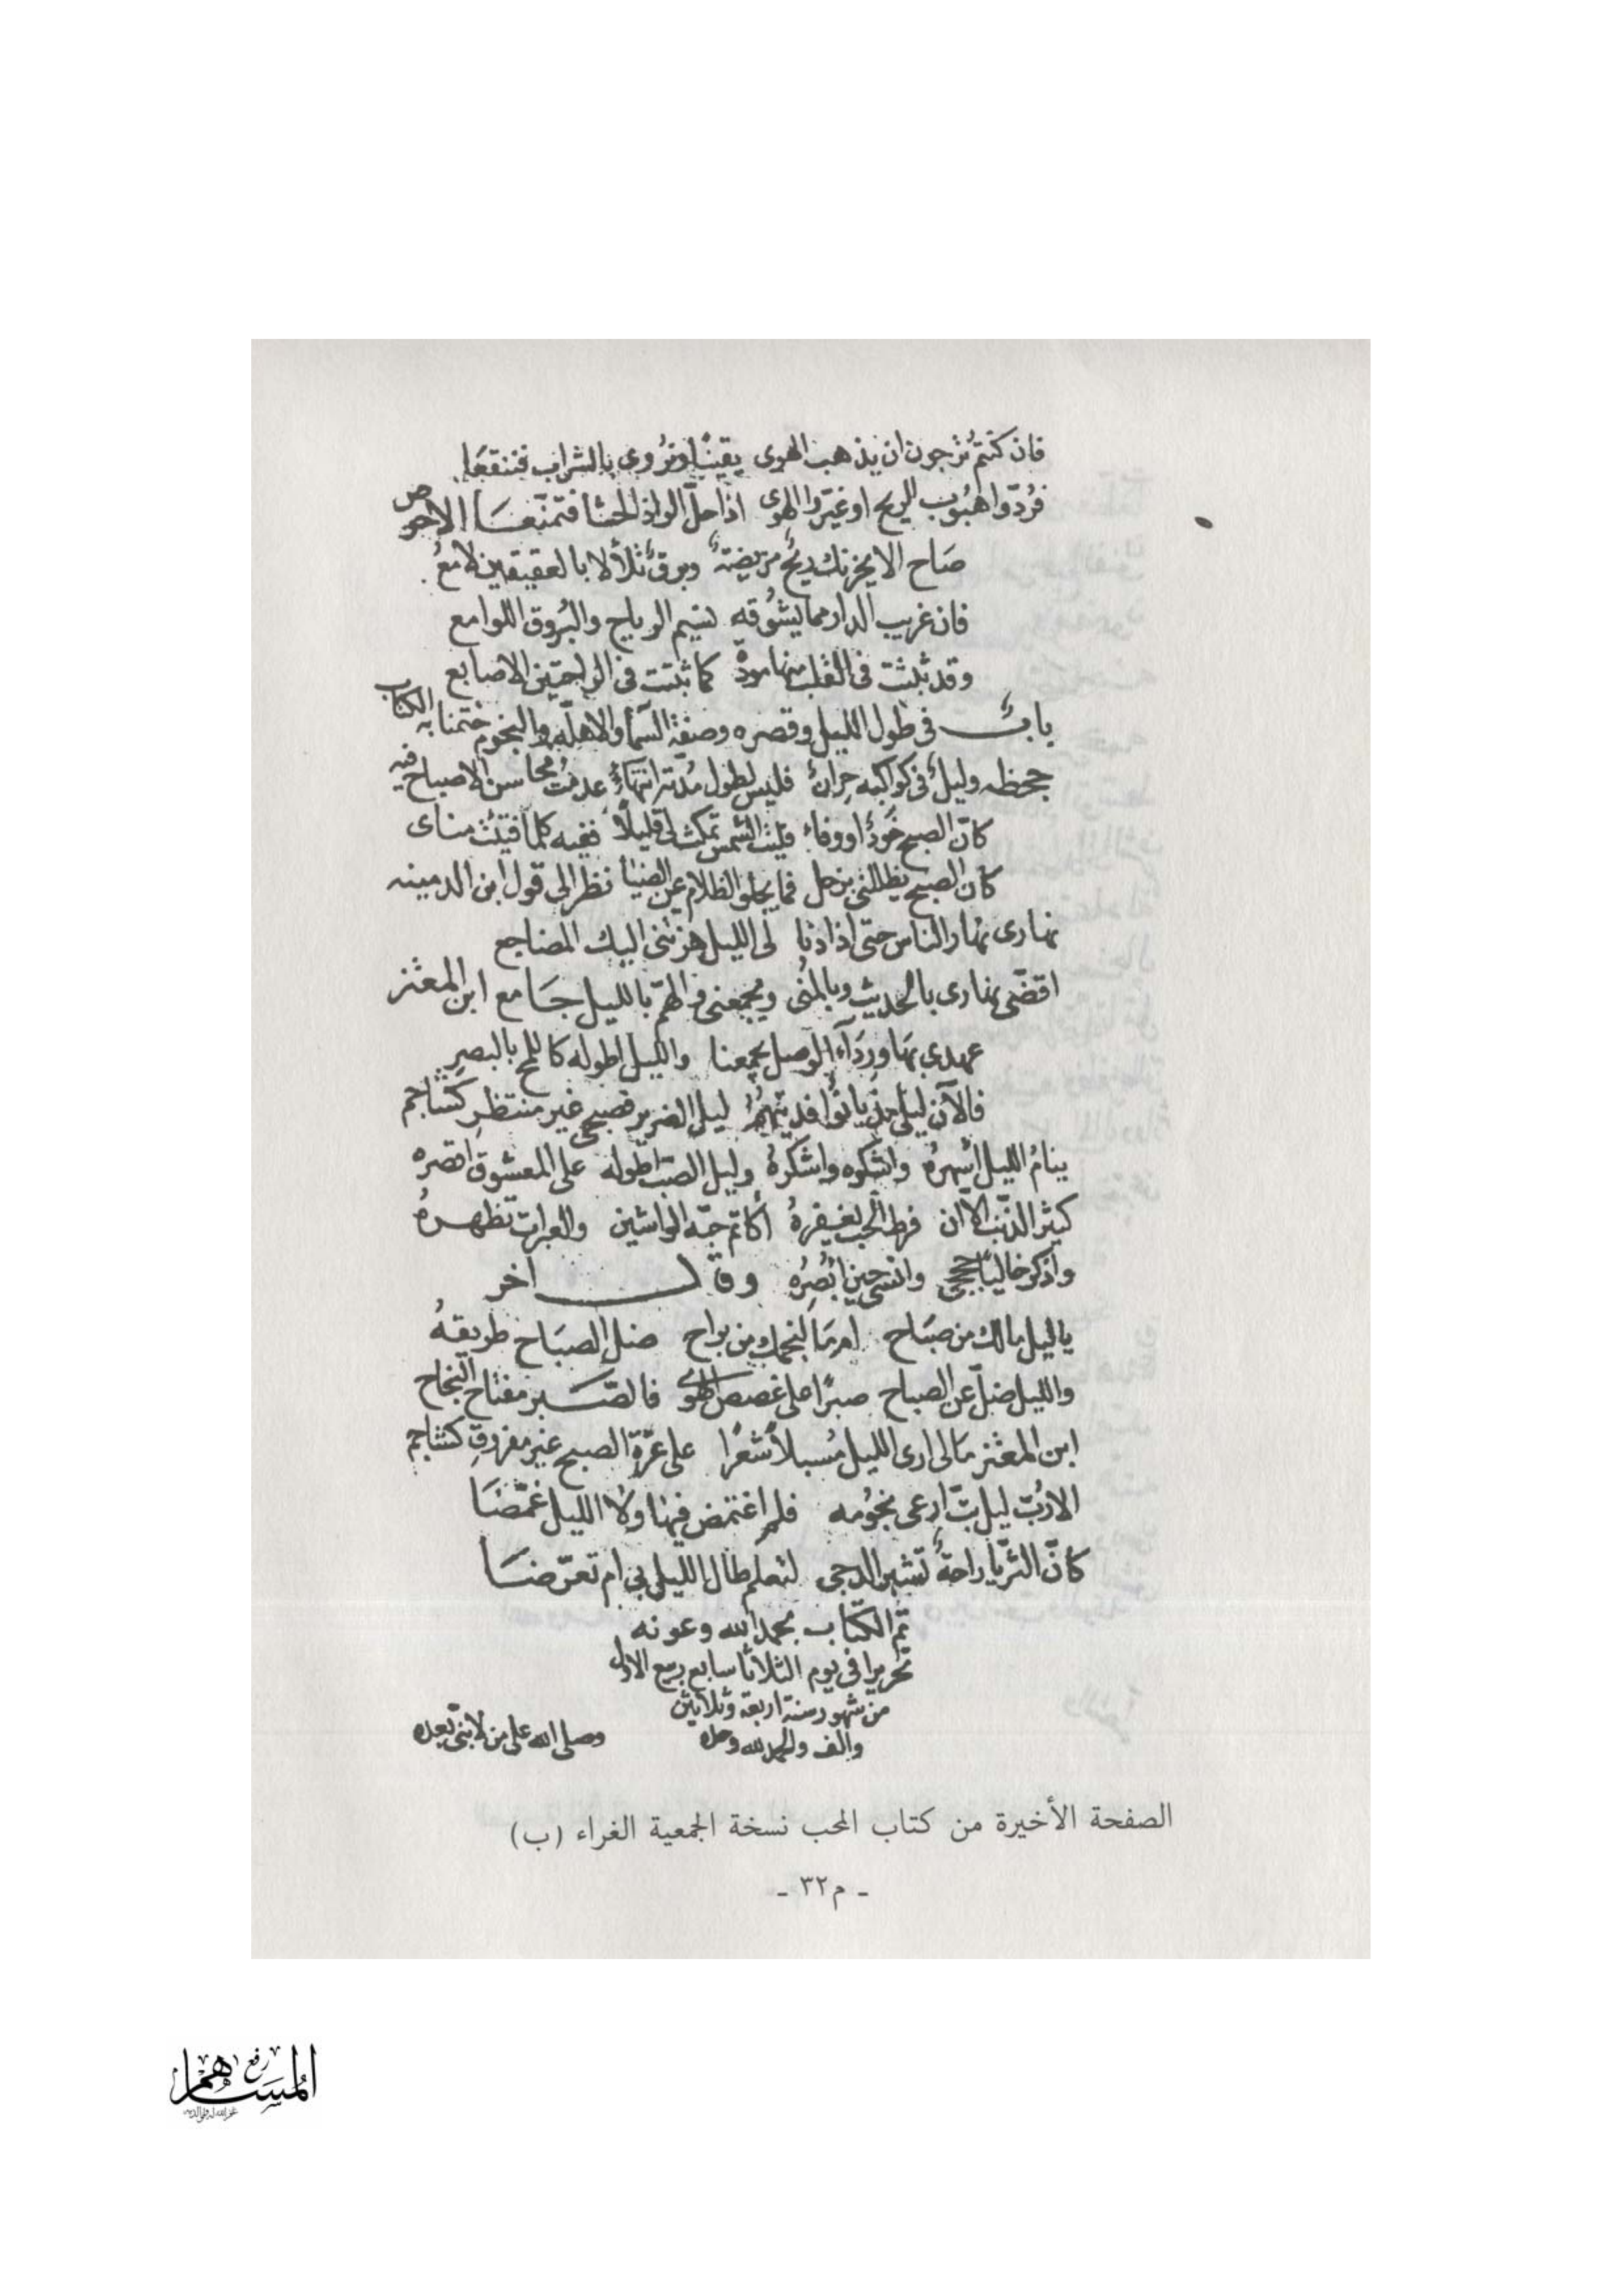 فان كنتم ترجون ان يذهب الهوى يقينًا ونروى بالشراب فننقعا
فردّوا هبوب الريح او غيّروا الهوى اذا حلّ الواذ الحشا فتمنّعا الاحوص
صاح الا يحزنك ريحٌ مريضةٌ وبرقٌ تلألا بالعقيقين لامعُ
فان غريب الدار مما يشوقه نسيم الرياح والبُروق اللوامع
وقد ثبتت في القلب منها مودة كما ثبتت في الراحتين الاصابع
بابٌ في طول الليل وقصره وصفة السمأ والاهلة والنجوم ختمنا به الكتاب
جحظه وليلٌ في كواكبه حرانٌ فليس لطول مدّته انتهاءٌ عدمتُ محاسن الاصباح فيه
كانّ الصبح جَودٌ او وفاءٌ فليت الشمس تمكث لي قليلًا ففيه كلما فيتث مناى
كان الصبح يطلبني بزحل فما يجلو الظلام عن الضيأ نظر الى قول ابن الدمينه
نهارى نهار الناس حتى اذا دنا لى الليل هزتنى اليك المضاجع
اقضّى نهارى بالحديث وبالمنى ويجمعنى والهمّ بالليل جامع ابن المعتز
عهدي بها ورداء الوصل يجمعنا والليل اطوله كاللمح بالبصرِ
فالآن ليلى مذ بانوا فديتهمُ ليل الضرير فصبحى غير منتظر كشاجم
ينامُ الليل أسهرهُ واشكوه واشكرهُ وليل الصبّ اطوله على المعشوق اقصره
كثير الذنب الا ان فرط الحب يغفرهُ أكاتم حبّه الواشين والعبرات تظهرهُ
واذكر خاليًا حججى وانسى حين أبصرُه وقال اخر
ياليل مالك من صباح ام ما لنجمك من براح ضل الصباح طريقهُ
والليل ضلّ عن الصباح صبرًا على غصص الهوى فالصّبر مفتاح النجاح
ابن المعتز مالى ارى الليل مُسبلاً شعرًا على غرّة الصبح غير مفروقِ كشاجم
الا ربّ ليل بتّ ارعى نجومه فلم اغتمض فيها ولا الليل غمّضا
كانّ الثريّا راحةٌ تشبر الدجى لتعلم طال الليل لي ام تعرّضا
تم الكتاب بحمد الله وعونه
تحريرا في يوم الثلاثا سابع ربيع الاول
من شهور سنة اربعة وثلاثين
والف والحمد لله وحده
وصلى الله على من لا نبىّ بعده
الصفحة الأخيرة من كتاب المحب نسخة الجمعية الغراء (ب)
- م٣٢ -
رفع
المساهم